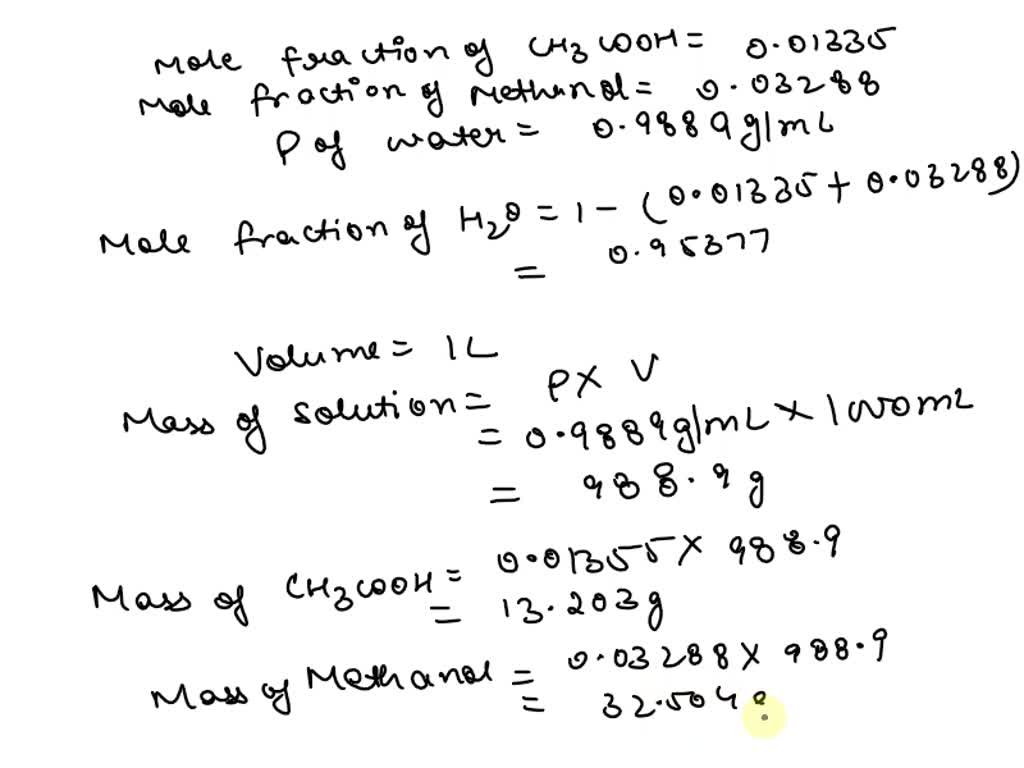 Mole fraction of CH3COOH = 0.01335
Mole fraction of Methanol = 0.03288
P of water = 0.9889 g/mL
Mole fraction of H2O = 1 - (0.01335 + 0.03288)
= 0.95377
Volume = 1L
Mass of solution = P X V
= 0.9889 g/mL X 1000 mL
= 988.9 g
Mass of CH3COOH = 0.01355 X 988.9
= 13.203 g
Mass of Methanol = 0.03288 X 988.9
= 32.504